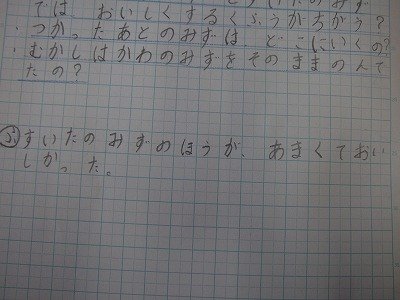 では、おいしくするくふうがちがう?
つかったあとのみずは、どこにいくの?
むかしはかわのみずをそのままのんで
たの?
⑤すいたのみずのほうが、あまくておい
しかった。